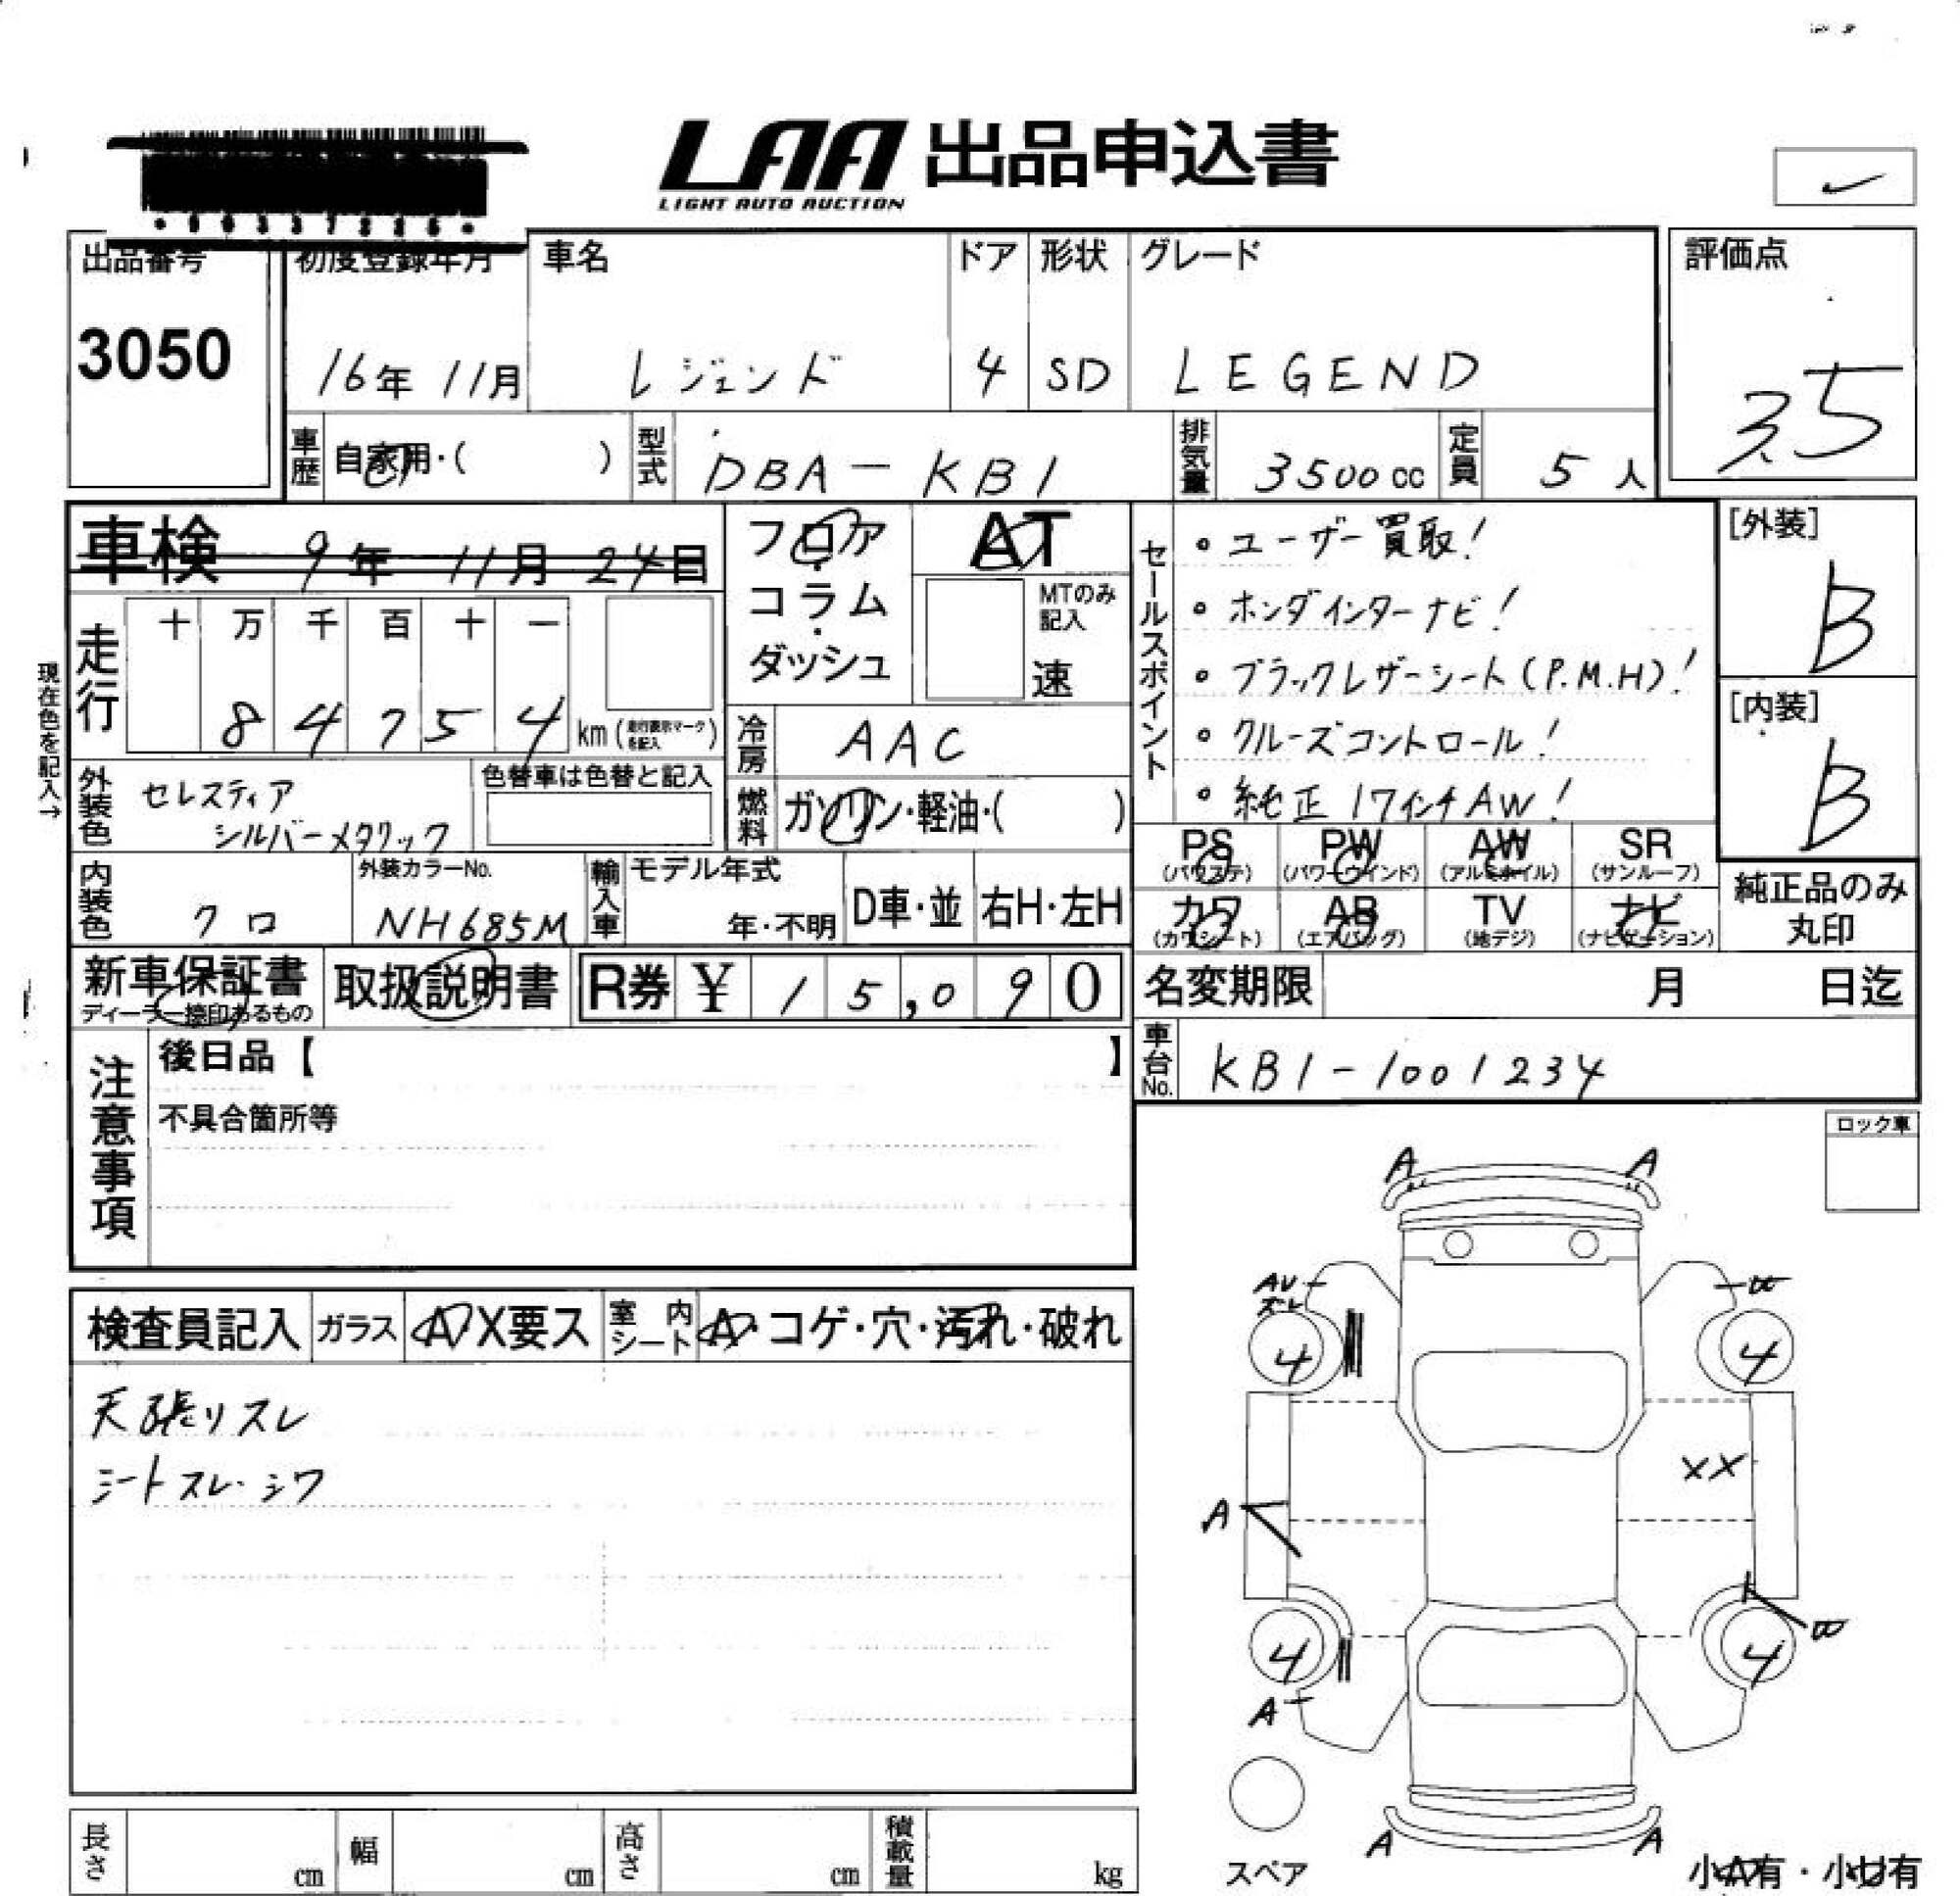 LAA 出品申込書
LIGHT AUTO AUCTION
出品番号
3050
初度登録年月
16年 11月
車名
レジェンド
ドア
4
形状
SD
グレード
LEGEND
評価点
3.5
車歴
自家用・( )
型式
DBA-KB1
排気量
3500cc
定員
5人
車検 9年 11月 24日
フロア・コラム・ダッシュ
AT
MTのみ記入
速
セールスポイント
・ユーザー買取!
・ホンダインターナビ!
・ブラックレザーシート(P.M.H)!
・クルーズコントロール!
・純正17インチAW!
[外装]
B
[内装]
B
現在色を記入→
走行
十 万 千 百 十 一
8 4 7 5 4 km (走行表示マークを記入)
冷房
AAC
外装色
セレスティア
シルバーメタリック
色替車は色替と記入
燃料
ガソリン・軽油・( )
PS (パワステ)
PW (パワーウインド)
AW (アルミホイル)
SR (サンルーフ)
カワ (カワシート)
AB (エアバッグ)
TV (地デジ)
ナビ (ナビゲーション)
純正品のみ丸印
内装色
クロ
外装カラーNo.
NH685M
輸入車
モデル年式
年・不明
D車・並
右H・左H
新車保証書
ディーラー捺印あるもの
取扱説明書
R券 ¥ 1 5,0 9 0
名変期限 月 日迄
車台No.
KB1-1001234
注意事項
後日品【 】
不具合箇所等
ロック車
検査員記入
ガラス
A・X要ス
室内シート
A・コゲ・穴・汚れ・破れ
天張リスレ
シートスレ・シワ
A A
AU
ズレ
4 4
XX
A
4 4
A
A A
スペア
小A有・小U有
長さ cm
幅 cm
高さ cm
積載量 kg